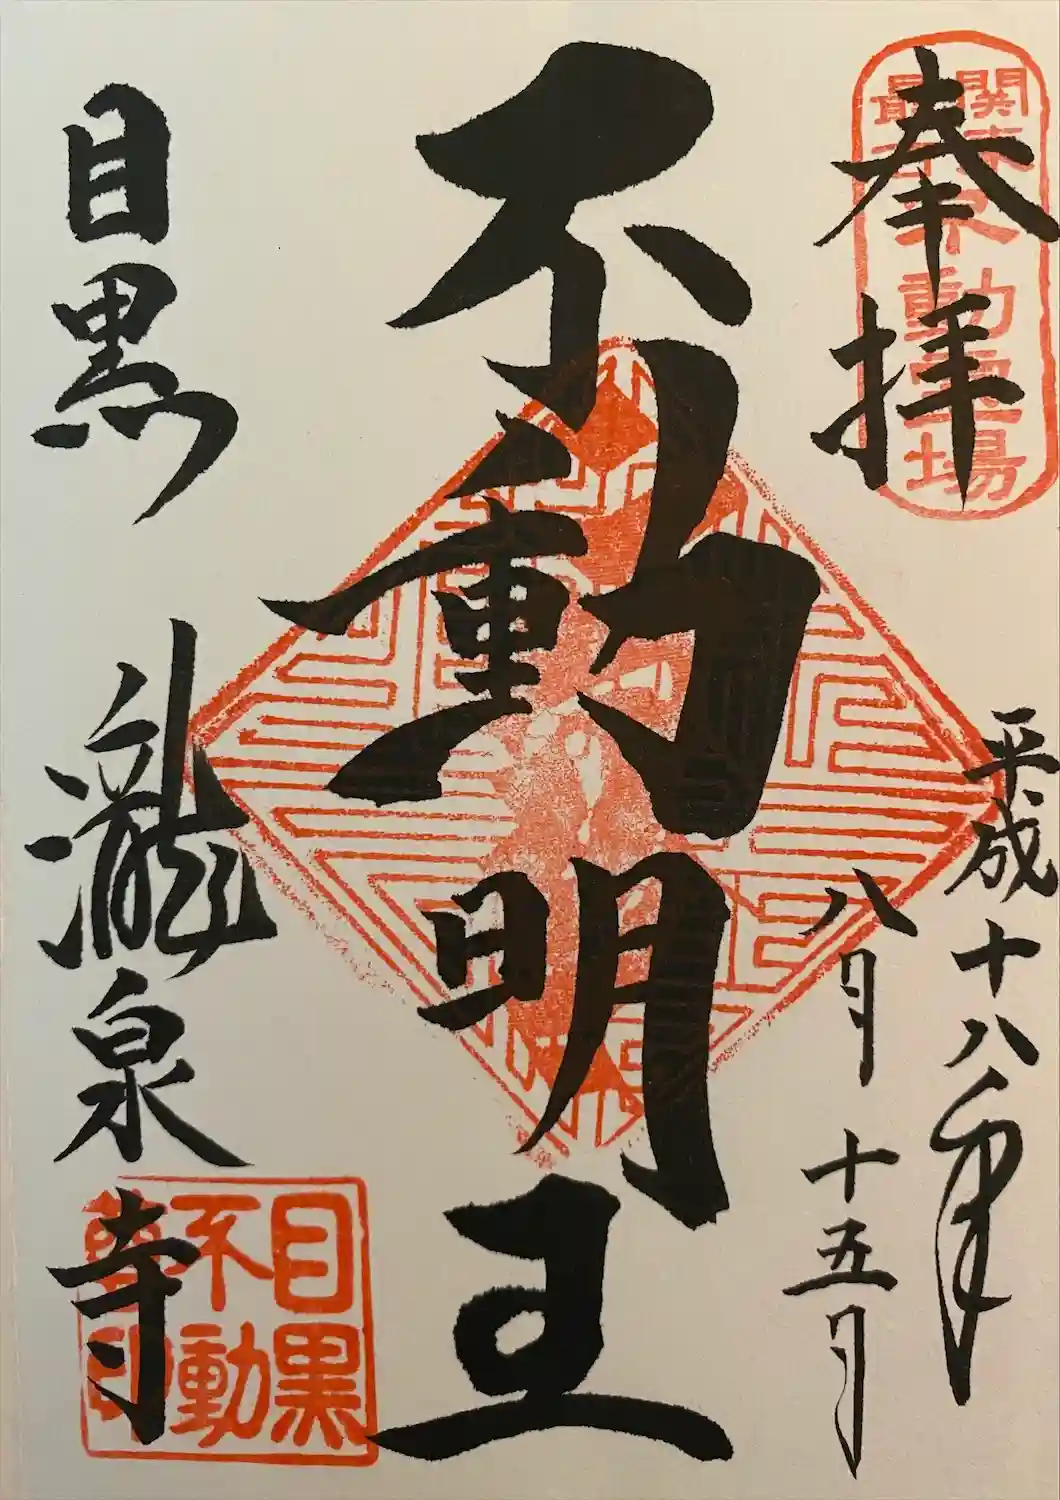 奉拝
関東
最古
不動霊場
平成十八年
八月十五月
不動明王
目黒 瀧泉寺
目黒
不動
印